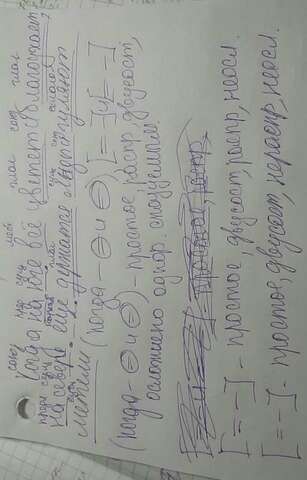 союз пред сущ мест глаг союз глаг
Когда на юге всё цветет и благоухает,
предл сущ нареч глаг сущ
На севере еще держатся и
метели (когда – ⊖ и ⊖), [= –] и [= –]
(когда – ⊖ и ⊖) – простое, распр двусост,
осложнено однор. сказуемым.
[= –] – простое, двусост, распр, неосл.
[= –] – простое, двусост, нераспр, неосл.